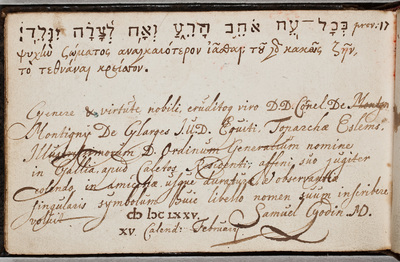 בְּכָל־עֵת אֹהֵב הָרֵעַ וְאָח לְצָרָה יִוָּלֵד׃ prov. 17
ψυχὴν σώματος ἀναγκαιότερον ἰᾶσθαι τοῦ γὸ κακῶς ζῆν,
το τεθνάναι κρεῖσσον.
Genere & virtute nobili, erudito viro D.D. Cornel. De
Montigni De Glarges J.U.D. Equiti. Toparchæ Eslems
Illustrissimorum D. Ordinum Generalium nomine
in Gallia apud Caletos Residenti; affini, suo jugiter
colendo in amicitiæ usque duraturæ & observantiæ
singularis symbolum huic libello nomen suum inscribere
voluit Samuel Godin MD.
cIɔ Iɔc LXXV.
XV. Calend: Februarij